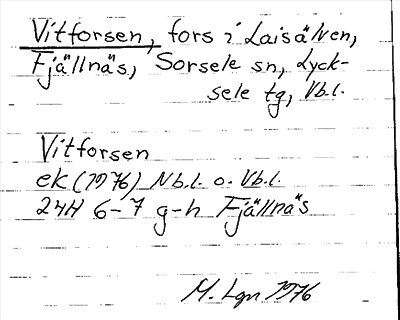 Vitforsen, fors i Laisälven,
Fjällnäs, Sorsele sn, Lyck-
sele tg, Vb.l.
Vitforsen
ek (1976) Nb.l. o. Vb.l.
24H 6-7 g-h Fjällnäs
M. Lgn 1976